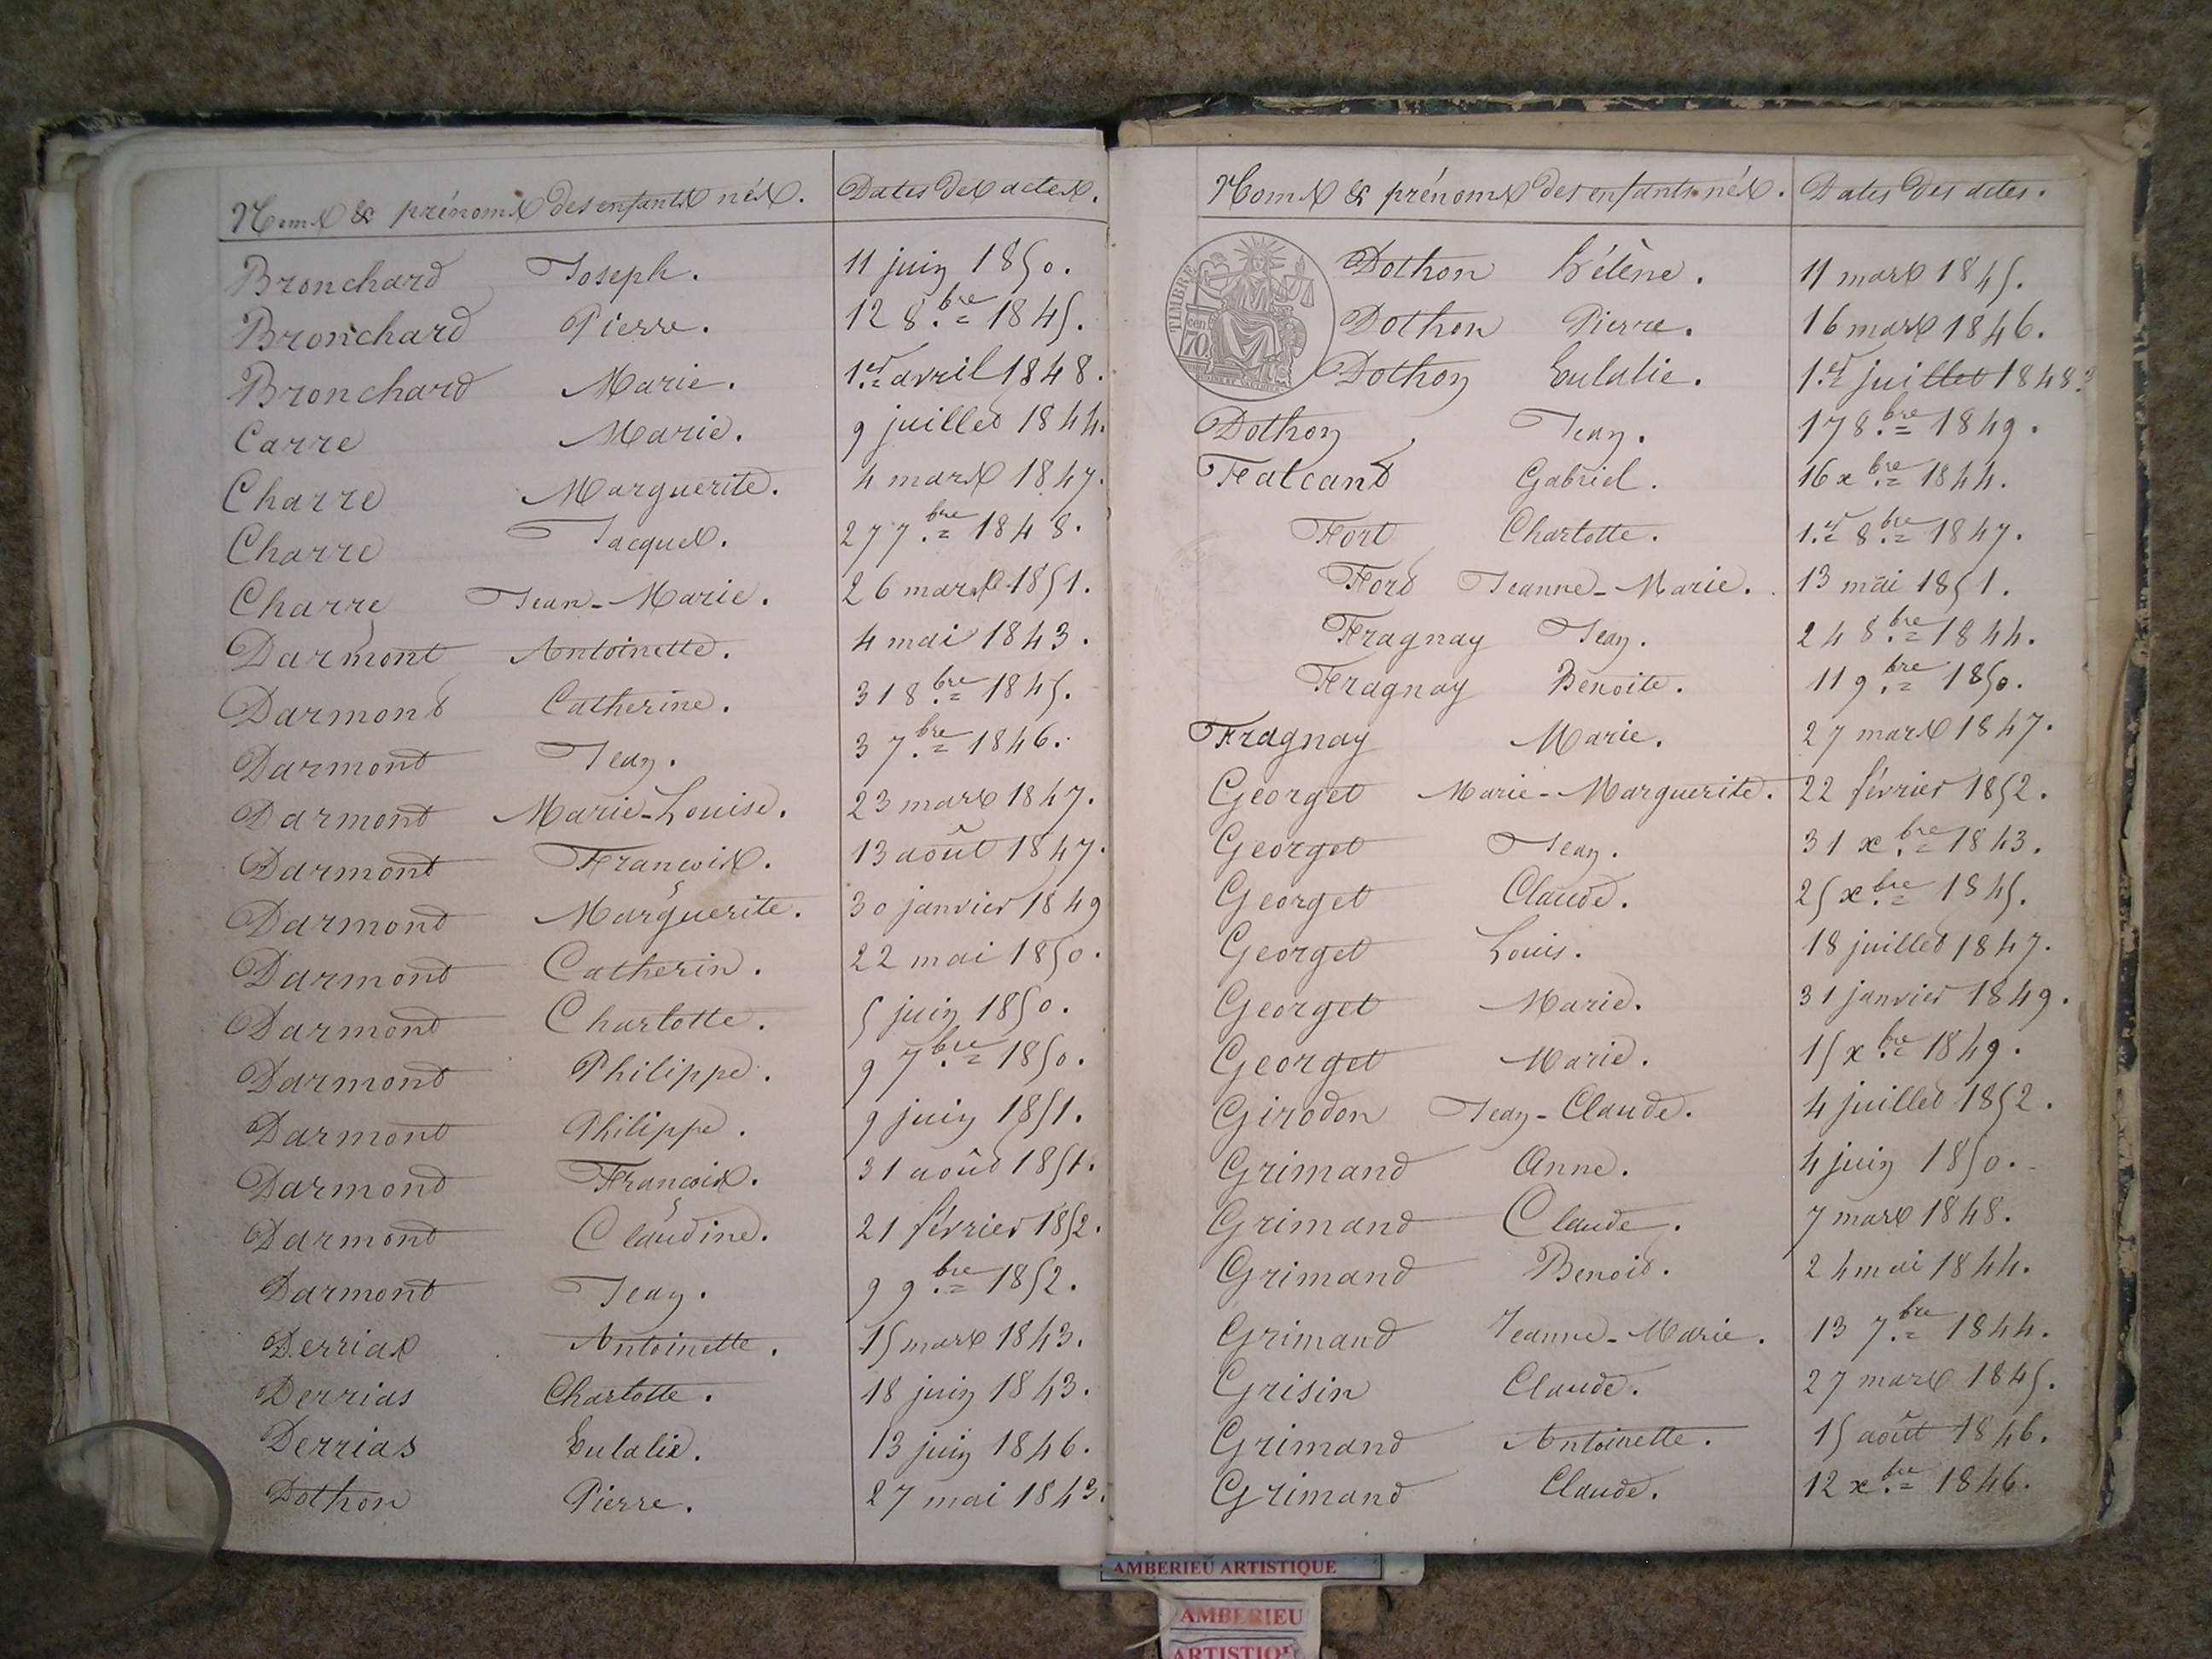 Noms & prénoms des enfants nés. Dates des actes.
Bronchard Joseph. 11 juin 1850.
Bronchard Pierre. 12 8.bre 1845.
Bronchard Marie. 1.er avril 1848.
Carre Marie. 9 juillet 1844.
Charre Marguerite. 4 mars 1847.
Charre Jacques. 27 7.bre 1848.
Charre Jean-Marie. 26 mars 1851.
Darmont Antoinette. 4 mai 1843.
Darmont Catherine. 31 8.bre 1845.
Darmont Jean. 3 7.bre 1846.
Darmont Marie-Louise. 23 mars 1847.
Darmont François. 13 août 1847.
Darmont Marguerite. 30 janvier 1849
Darmont Catherin. 22 mai 1850.
Darmont Charlotte. 5 juin 1850.
Darmont Philippe. 9 7.bre 1850.
Darmont Philippe. 9 juin 1851.
Darmont François. 31 août 1851.
Darmont Claudine. 21 février 1852.
Darmont Jean. 9 9.bre 1852.
Derrias Antoinette. 15 mars 1843.
Derrias Charlotte. 18 juin 1843.
Derrias Eulalie. 13 juin 1846.
Dothon Pierre. 27 mai 1843.
Noms & prénoms des enfants nés. Dates des actes.
TIMBRE
70 cen
Dothon Hélène. 11 mars 1845.
Dothon Pierre. 16 mars 1846.
Dothon Eulalie. 1.er juillet 1848.
Dothon Jean. 17 8.bre 1849.
Falcant Gabriel. 16 x.bre 1844.
Fort Charlotte. 1.er 8.bre 1847.
Fort Jeanne-Marie. 13 mai 1851.
Fragnay Jean. 24 8.bre 1844.
Fragnay Benoite. 11 9.bre 1850.
Fragnay Marie. 27 mars 1847.
Georget Marie-Marguerite. 22 février 1852.
Georget Jean. 31 x.bre 1843.
Georget Claude. 25 x.bre 1845.
Georget Louis. 18 juillet 1847.
Georget Marie. 31 janvier 1849.
Georget Marie. 15 x.bre 1849.
Girodon Jean-Claude. 4 juillet 1852.
Grimand Anne. 4 juin 1850.
Grimand Claude. 7 mars 1848.
Grimand Benoit. 24 mai 1844.
Grimand Jeanne-Marie. 13 7.bre 1844.
Grisin Claude. 27 mars 1845.
Grimand Antoinette. 15 août 1846.
Grimand Claude. 12 x.bre 1846.
AMBERIEU ARTISTIQUE
AMBERIEU
ARTISTIQUE